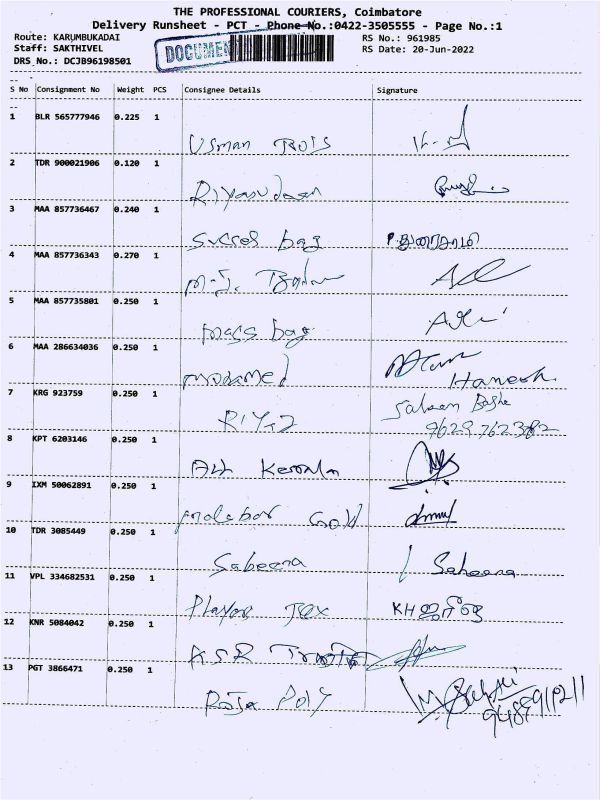 THE PROFESSIONAL COURIERS, Coimbatore
Delivery Runsheet - PCT - Phone No.:0422-3505555 - Page No.:1
Route: KARUMBUKADAI RS No.: 961985
Staff: SAKTHIVEL DOCUMEN RS Date: 20-Jun-2022
DRS No.: DCJB96198501
S No Consignment No Weight PCS Consignee Details Signature
1 BLR 565777946 0.225 1
Usman
2 TDR 900021906 0.120 1
3 MAA 857736467 0.240 1
bag
4 MAA 857736343 0.270 1
M.J.
5 MAA 857735801 0.250 1
mass bag
6 MAA 286634036 0.250 1
mohamed
7 KRG 923759 0.250 1
RIYAZ 9629762382
8 KPT 6203146 0.250 1
All Kerala
9 IXM 50062891 0.250 1
malabar Gold
10 TDR 3085449 0.250 1
Sabeena
11 VPL 334682531 0.250 1
Tex KH
12 KNR 5084042 0.250 1
A.S.R
13 PGT 3866471 0.250 1
Raja Poly